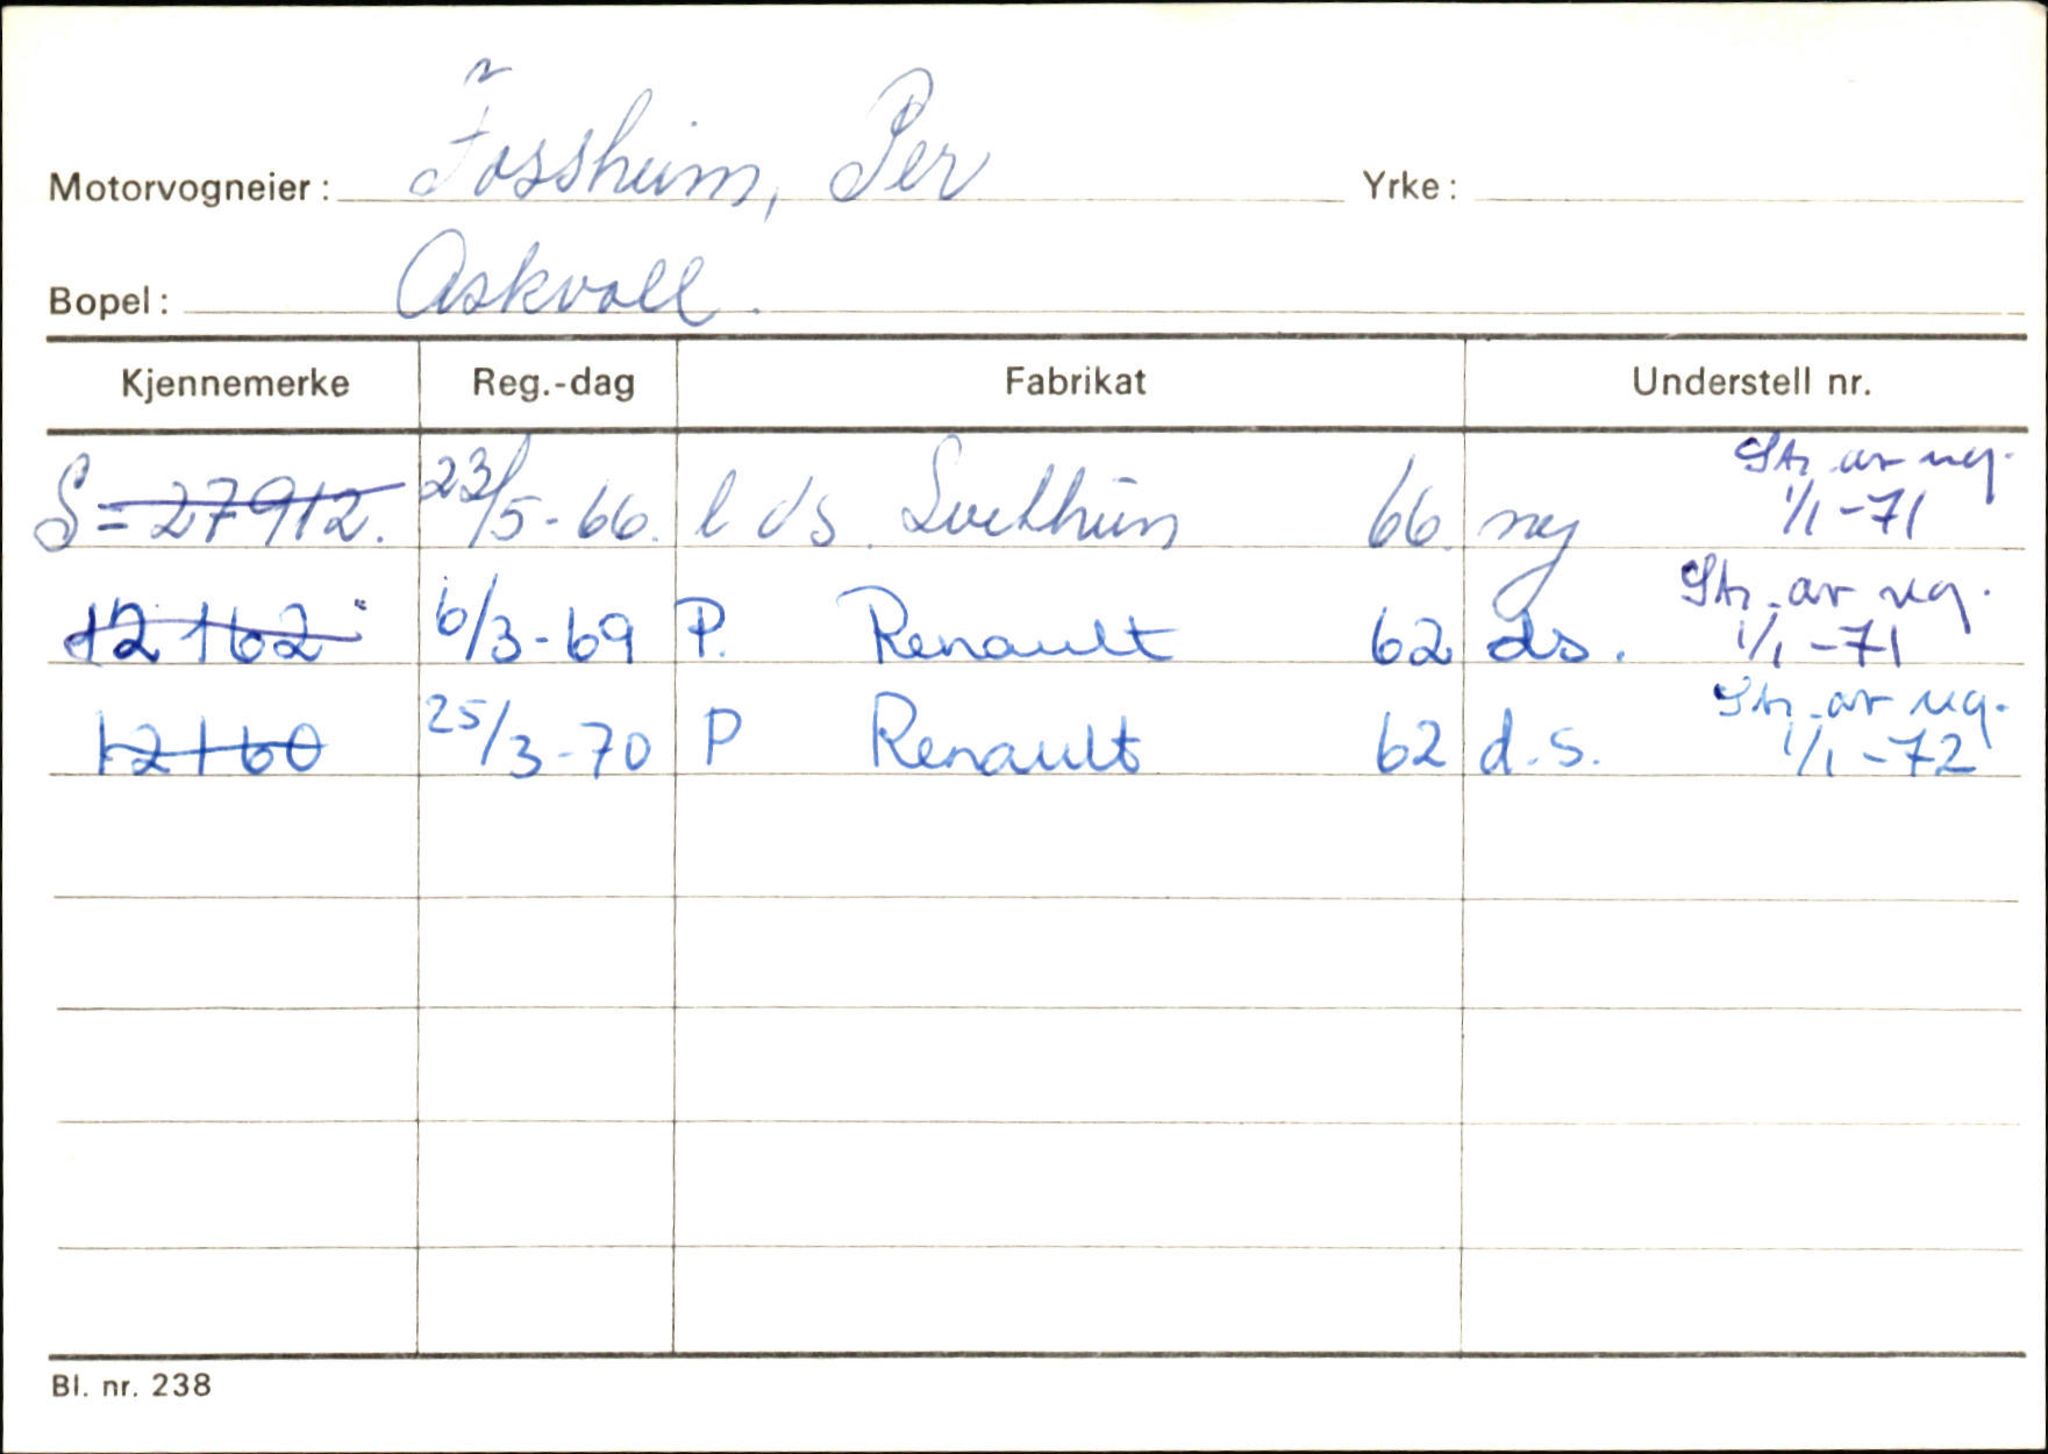 Motorvogneier: Fossheim, Per Yrke:
Bopel: Askvoll.
Kjennemerke Reg.-dag Fabrikat Understell nr.
Str. av reg.
S=27912. 23/5-66. l ds. Svithun 66. ny 1/1-71
Str. av reg.
12162" 6/3-69 P. Renault 62 ds. 1/1-71
Str. av reg.
12160 25/3-70 P Renault 62 d.s. 1/1-72
Bl. nr. 238